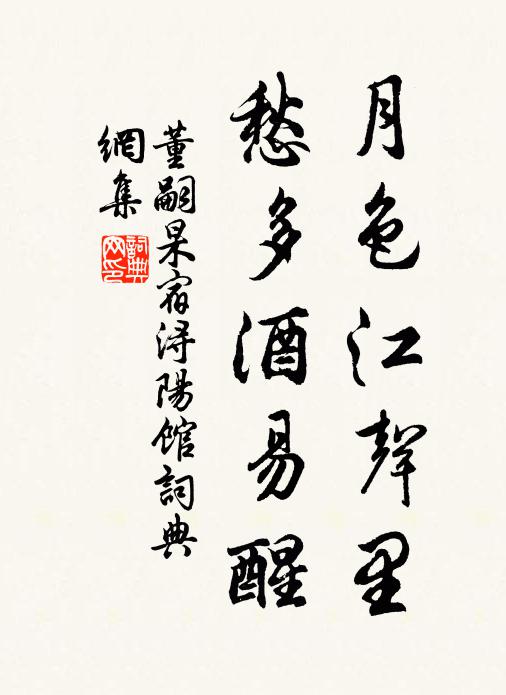 月色江聲里
愁多酒易醒
董嗣杲宿浔陽館詞典
網集
詞典网印